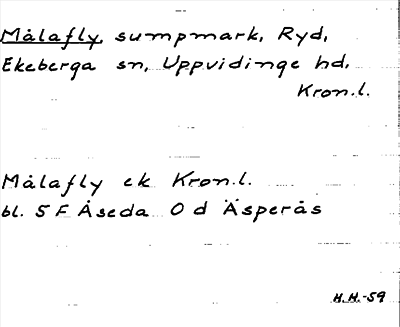 Målafly, sumpmark, Ryd,
Ekeberga sn, Uppvidinge hd,
Kron.l.
Målafly ek Kron.l.
bl. 5 F Åseda 0 d Äsperås
H.H.-59